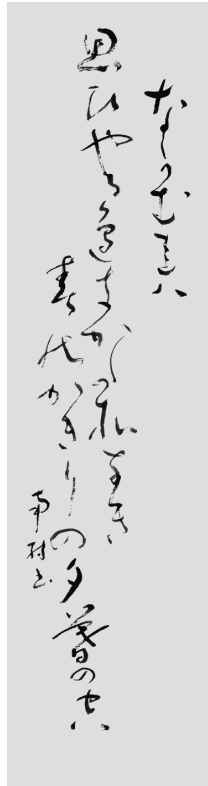 なかむれは
思ひやるべきかたそなき
春のかきりの夕暮の空